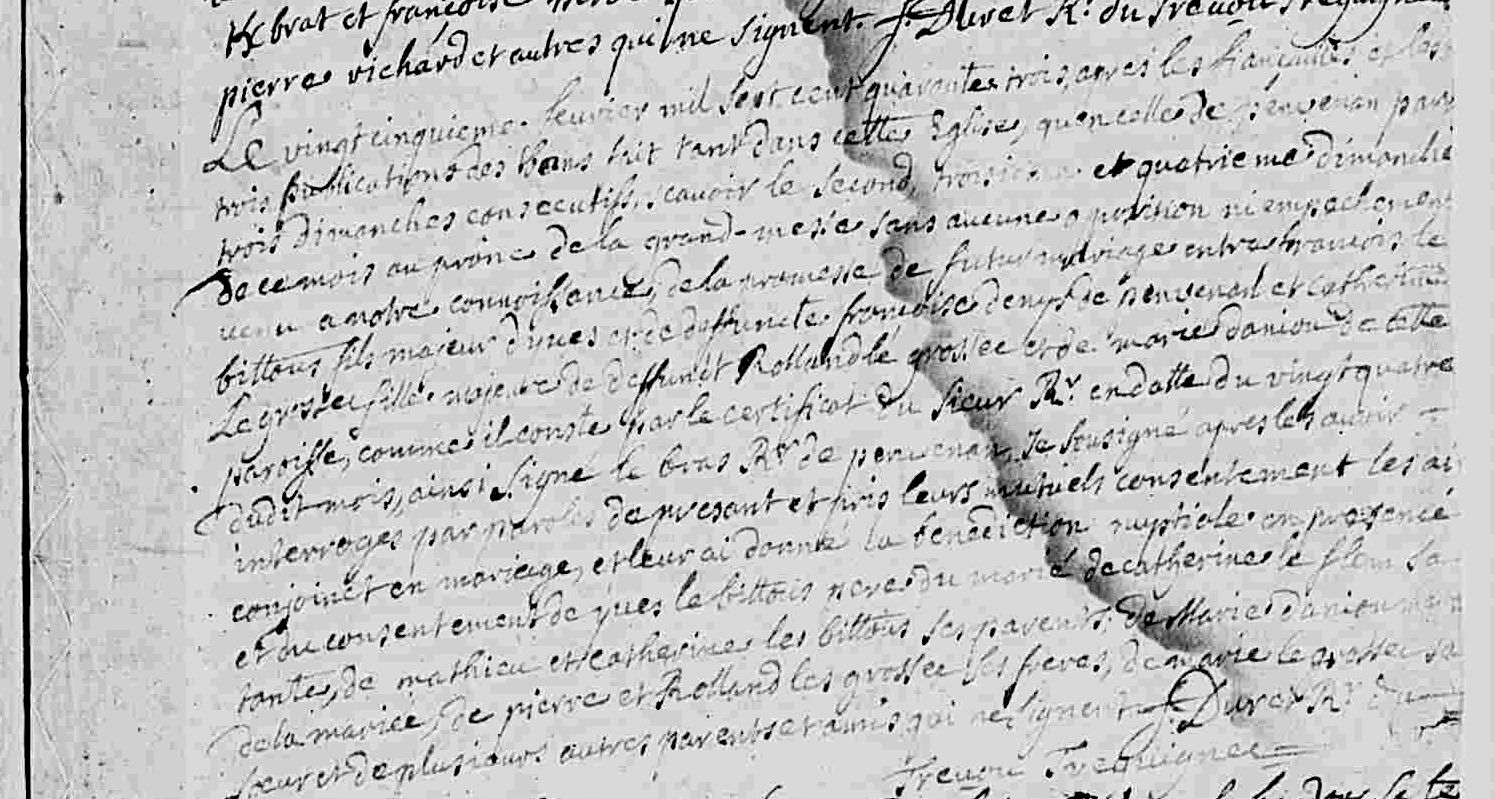 brat et françoise
pierre richard et autres qui ne signent. J. Duret Rr. du Trevou Treguignec
Le vingt cinquieme feuvrier mil sept cent quarante trois, apres les fiançailles et les
trois publications des bans fait tant dans cette Eglise, qu'en celle de penvenan par
trois dimanches consecutifs, scavoir le second, troisieme et quatrieme dimanche
de ce mois au prône de la grand-messe sans aucune opposition ni empechement
venu a notre connoissance, de la promesse de futur mariage entre francois le
bittous fils majeur d'yves et de deffuncte françoise denys de penvenan et catherine
Le grossec fille majeure de deffunct Rolland le grossec et de marie daniou de cette
paroisse, comme il conste par le certificat du sieur Rr. en datte du vingt quatre
dudit mois, ainsi signé le bras Rr de penvenan, Je sousigné apres les avoir
interroges par paroles de presant et pris leurs mutuels consentement les ai
conjoinct en mariage, et leur ai donné la benediction nuptiale en presence
et du consentement de yves le bittous pere du marié de catherine le flem sa
tante, de mathieu et catherine les bittous ses parents, de Marie daniou mere
de la mariée, de pierre et Rolland les grossec ses freres, de marie le grossec sa
soeur et de plusieurs autres parents et amis qui ne signent J. Duret Rr du
Trevou Treguignec